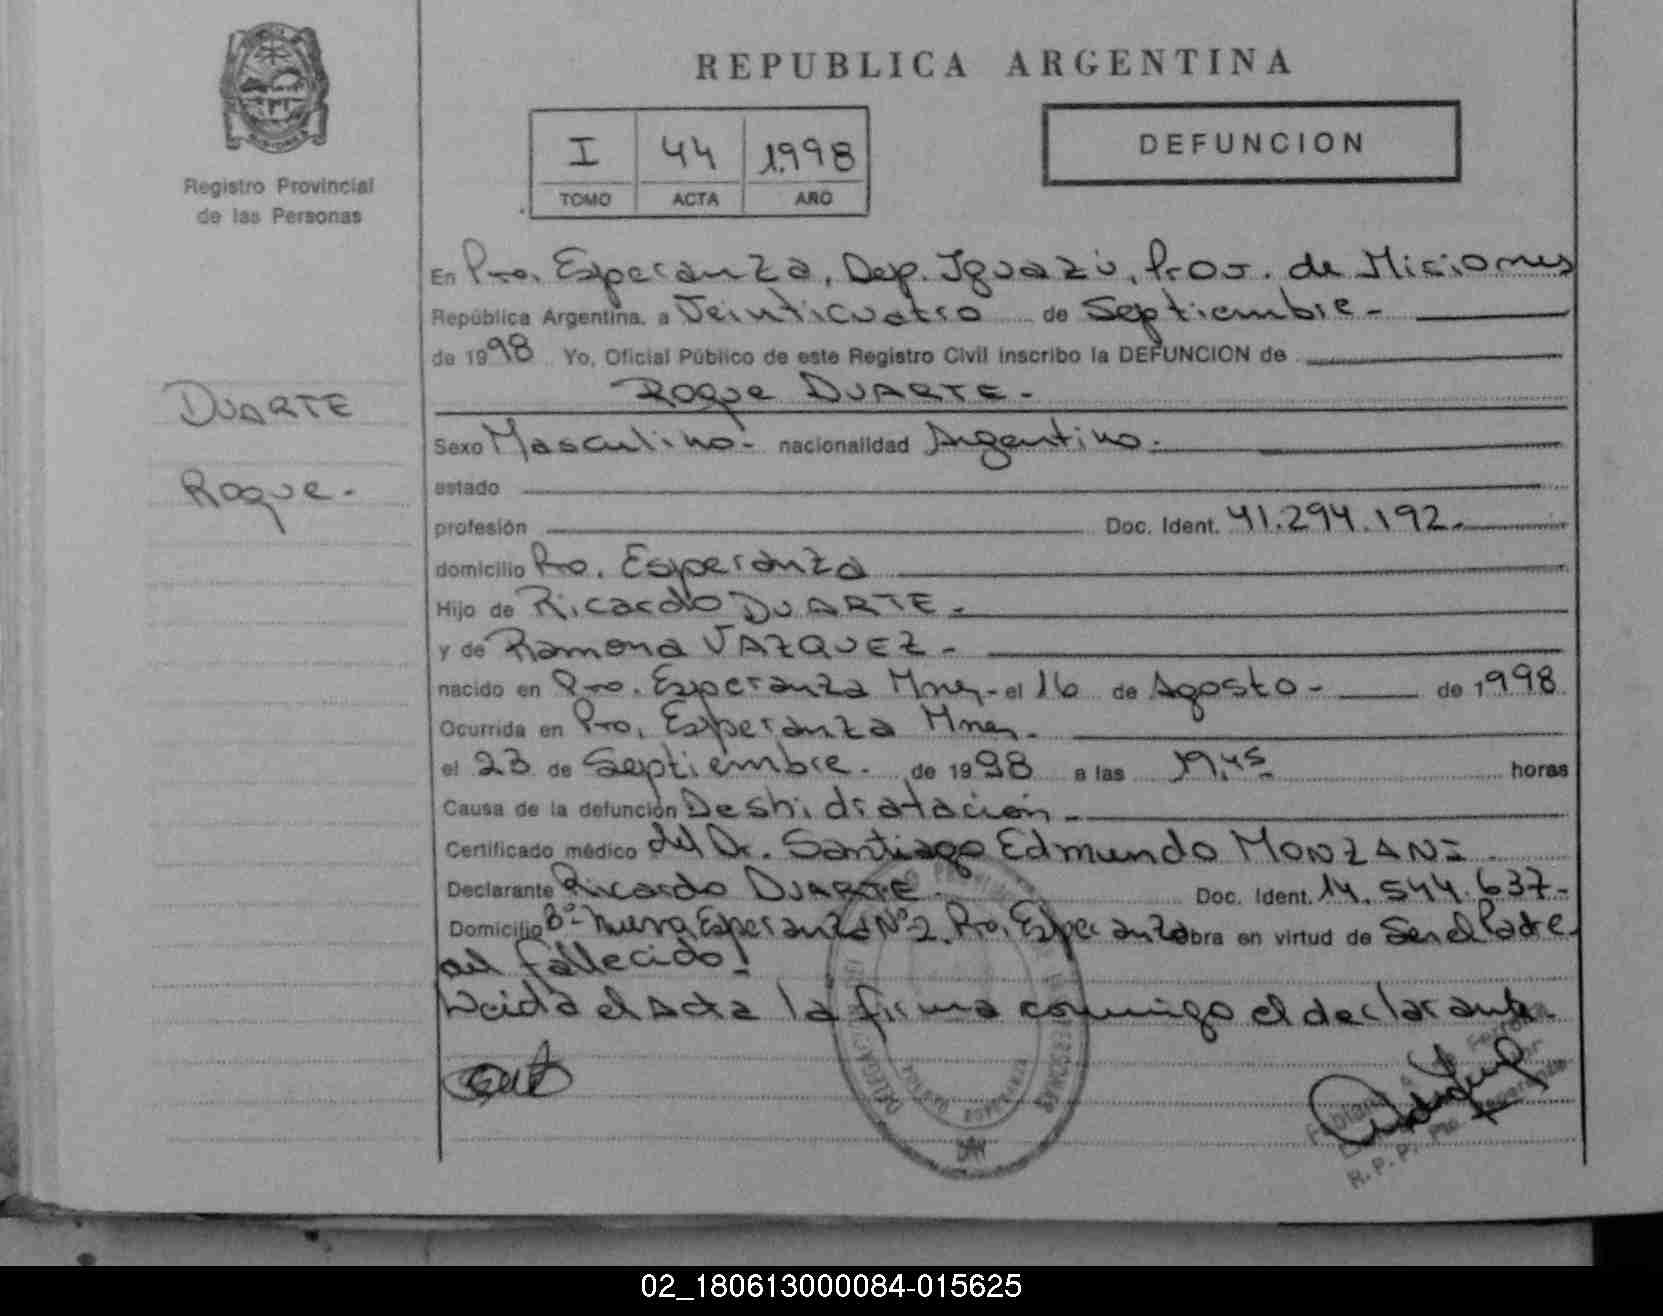 REPUBLICA ARGENTINA
I 44 1.998
TOMO ACTA AÑO
DEFUNCION
Registro Provincial
de las Personas
DUARTE
Roque.-
En Pto. Esperanza, Dep. Iguazú, Prov. de Misiones
República Argentina, a Veinticuatro de Septiembre.-
de 1998 Yo, Oficial Público de este Registro Civil inscribo la DEFUNCION de
Roque DUARTE.-
Sexo Masculino.- nacionalidad Argentino.-
estado
profesión Doc. Ident. 41.294.192.-
domicilio Pto. Esperanza
Hijo de Ricardo DUARTE.-
y de Ramona VAZQUEZ.-
nacido en Pto. Esperanza Mnes.- el 16 de Agosto.- de 1998
Ocurrida en Pto. Esperanza Mnes.-
el 23 de Septiembre. de 1998 a las 19,45 horas
Causa de la defunción Deshidratación.-
Certificado médico del Dr. Santiago Edmundo MONZANI
Declarante Ricardo DUARTE Doc. Ident. 14.544.637.-
Domicilio Bº Nueva Esperanza Nº2. Pto. Esperanza obra en virtud de Ser el Padre
del fallecido!
Leida el Acta la firma conmigo el declarante.
R.P.P. Pto. Esperanza
02_180613000084-015625